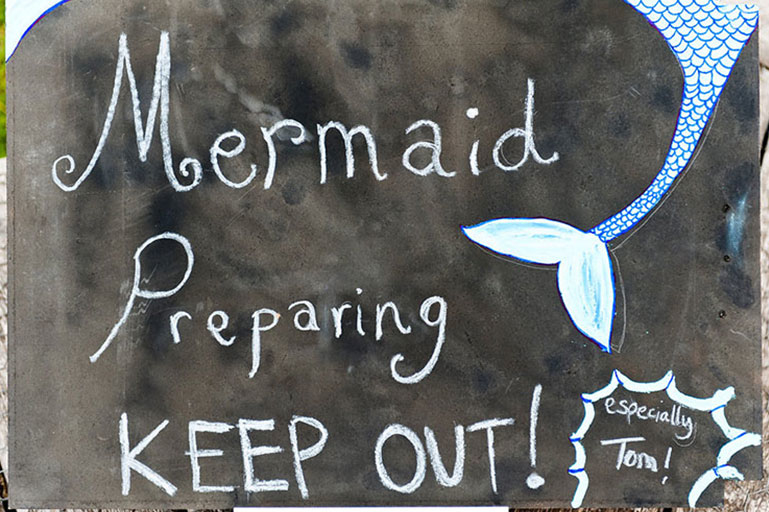 Mermaid
Preparing
KEEP OUT!
especially
Tom!